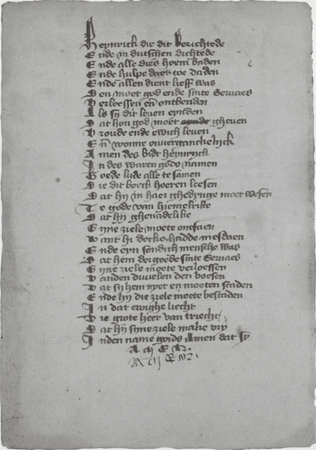 Heynrick die dit berichtede
Ende in duitschen dichtede
Ende alle dies hoem baden
Ende hulpe daer toe daden
Ende allen dient lieff was
Den moet god ende sinte Seruaes
Verloessen en ontbenden
Als sy dit leuen eynden
Dat hon god moet gheuen
Vroude ende ewich leuen
En wonne onuerganckelijck
Amen des bidt heynryck
In des waren gods namen
Goede lude alle te samen
Die dit boeck hoeren leesen
Dat hij in haer ghedynge moet wesen
Te gode van hiemelrike
Dat hij ghenadelike
Sijne ziele moete ontfaen
Want hi decke hadde mesdaen
Ende eyn sondich mensche was
Dat hem der goede sinte Seruaes
Sijne ziele moete verloessen
Vanden duuelen den boesen
Dat sij hem nyet en moeten scaden
Ende hij die ziele moete bestaden
In dat ewighe liecht
Die grote heer van triecht
Dat hij sijne ziele make vry
Inden name goids Amen dat sy
A M E N
A M E N